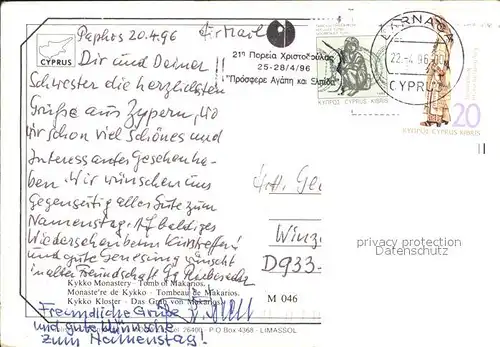 Paphos 20.4.96
Air Mail
CYPRUS
Dir und Deiner
Schwester die herzlichsten
Grüße aus Zypern, wo
wir schon viel Schönes und
Interessantes Gesehen ha-
ben. Wir wünschen uns
Gegenseitig alles Gute zum
Namenstag. Auf baldiges
Wiedersehen beim
und gute Genesung wünscht
in alter Freundschaft
Kykko Monastery - Tomb of Makarios.
Monastère de Kykko - Tombeau de Makarios.
Kykko Kloster - Das Grab von Makarios.
M 046
Freundliche Grüße
und gute Wünsche
zum Namenstag!
26400 - P O Box 4368 - LIMASSOL
21η Πορεία Χριστοδούλας
25-28/4/96
"Πρόσφερε Αγάπη και Ελπίδα"
ΚΥΠΡΟΣ CYPRUS KIBRIS
LARNACA
22.4.96
CYPRUS
20
ΚΥΠΡΟΣ CYPRUS KIBRIS
D933
privacy protection
Datenschutz